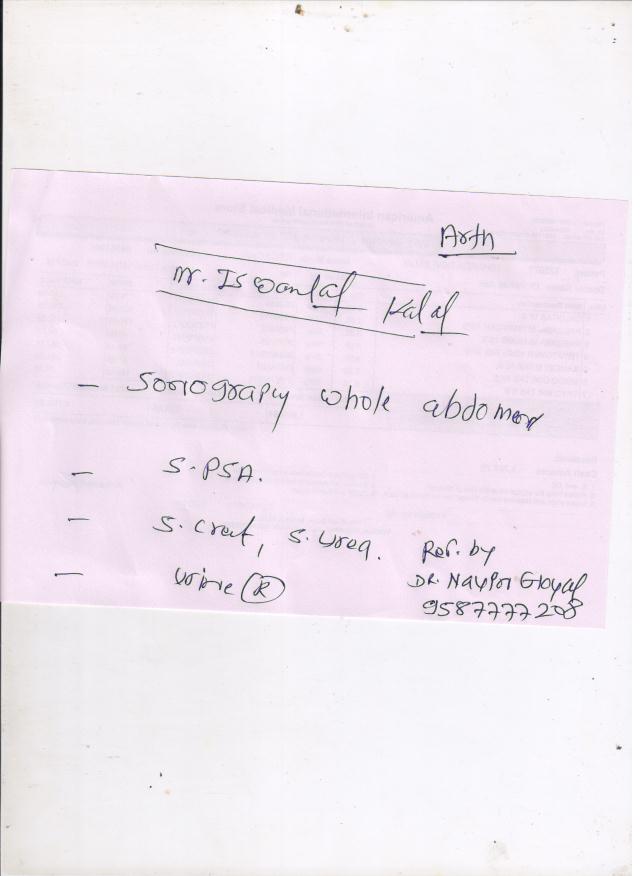 Arth
Mr. Iswarlal Kalal
- Sonography whole abdomen
- S. PSA.
- S. creat, S. urea.
- Urine (R)
Ref. by
DR. Goyal
9587777208